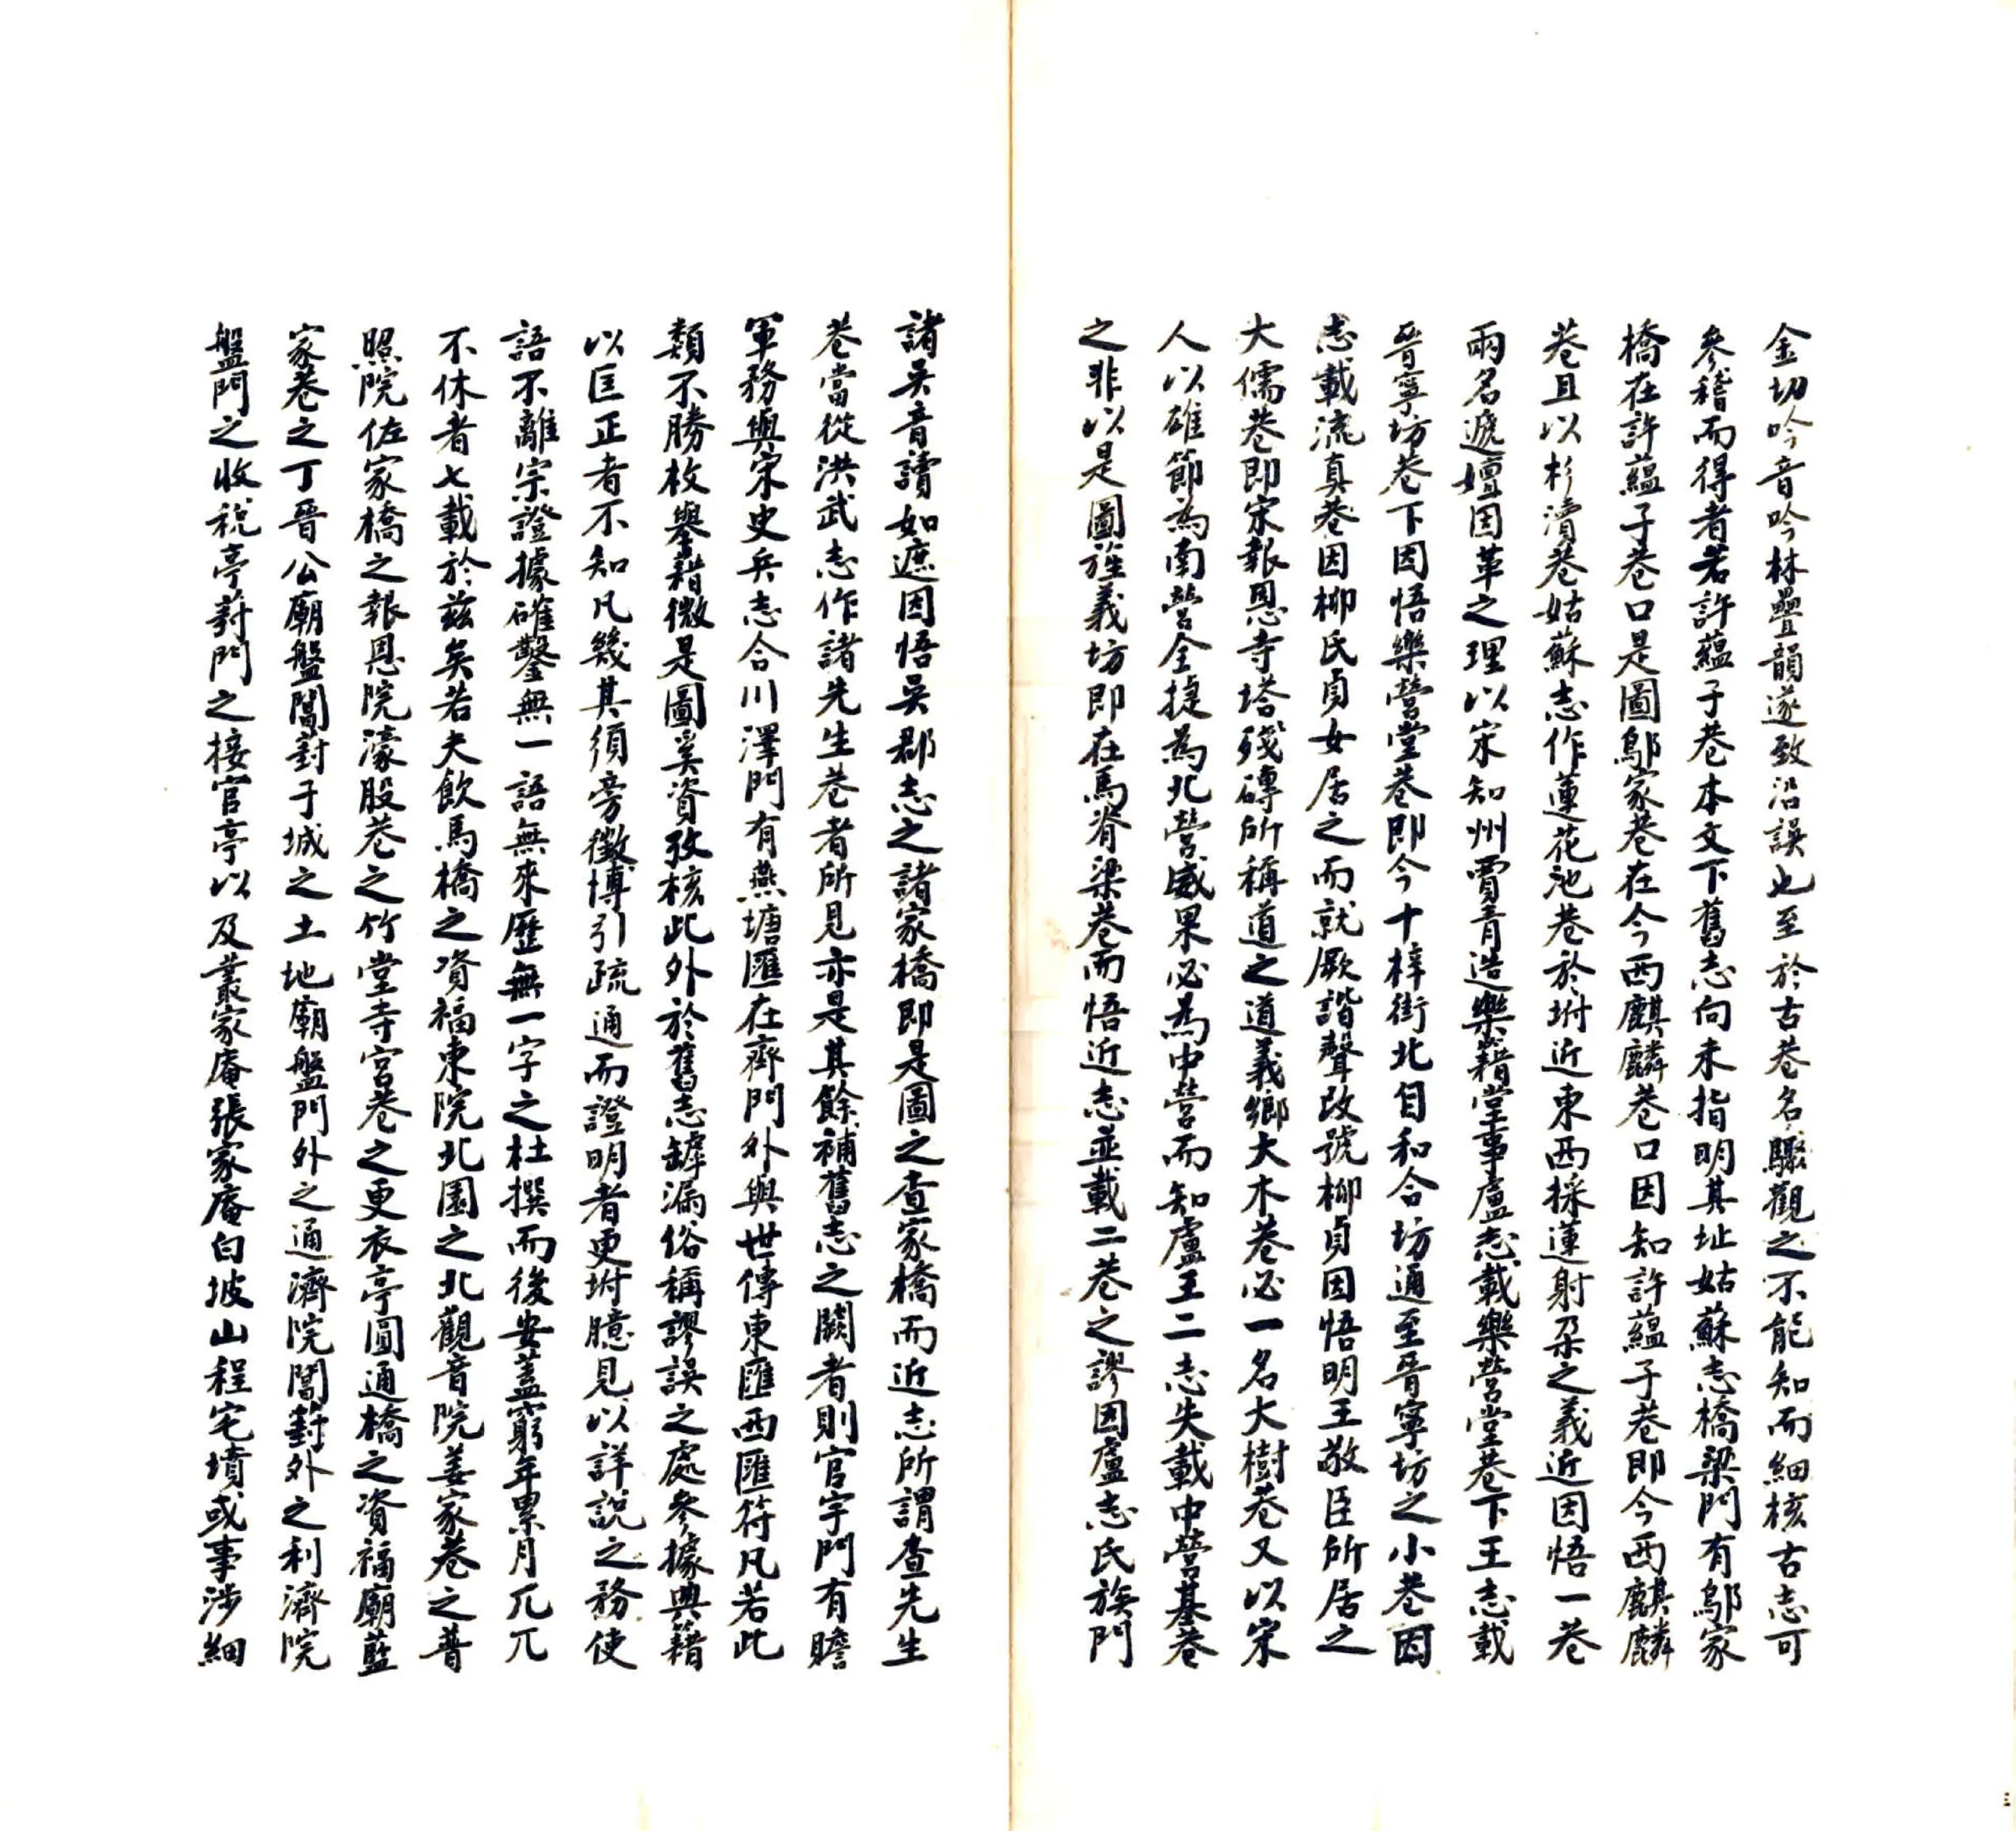 金切吟音吟林疊韻遂致沿誤也至於古巷名驟觀之不能知而細核古志可
參稽而得者若許蘊子巷本文下舊志向未指明其址姑蘇志橋梁門有鄔家
橋在許蘊子巷口是圖鄔家巷在今西麒麟巷口因知許蘊子巷即今西麒麟
巷且以杉瀆巷姑蘇志作蓮花池巷於坿近東西採蓮射朶之義近因悟一巷
兩名遞嬗因革之理以宋知州賈青造樂籍堂事盧志載樂營堂巷下王志載
晉寧坊巷下因悟樂營堂巷即今十梓街北自和合坊通至晉寧坊之小巷因
志載流真巷因柳氏貞女居之而就厥諧聲改號柳貞因悟明王敬臣所居之
大儒巷即宋報恩寺塔殘磚所稱道之道義鄉大木巷必一名大樹巷又以宋
人以雄節為南營全捷為北營威果必為中營而知盧王二志失載中營基巷
之非以是圖旌義坊即在馬脊梁巷而悟近志並載二巷之謬因盧志氏族門
諸吳音讀如遮因悟吳郡志之諸家橋即是圖之查家橋而近志所謂查先生
巷當從洪武志作諸先生巷者所見亦是其餘補舊志之闕者則官宇門有贍
軍務與宋史兵志合川澤門有燕塘匯在齊門外與世傳東匯西匯符凡若此
類不勝枚舉藉微是圖奚資攷核此外於舊志罅漏俗稱謬誤之處參據典籍
以匡正者不知凡幾其須旁徵博引疏通而證明者更坿臆見以詳說之務使
語不離宗證據確鑿無一語無來歷無一字之杜撰而後安蓋窮年累月兀兀
不休者七載於茲矣若夫飲馬橋之資福東院北園之北觀音院姜家巷之普
照院佐家橋之報恩院濠股巷之竹堂寺宮巷之更衣亭圓通橋之資福廟藍
家巷之丁晉公廟盤閶封于城之土地廟盤門外之通濟院閶葑外之利濟院
盤門之收稅亭葑門之接官亭以及叢家庵張家庵白坡山程宅墳或事涉細